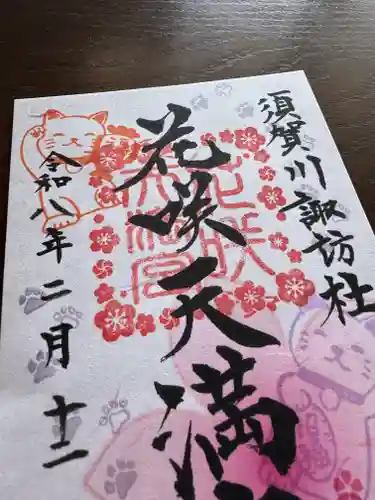 須賀川諏訪社
花咲天満
令和八年二月十二